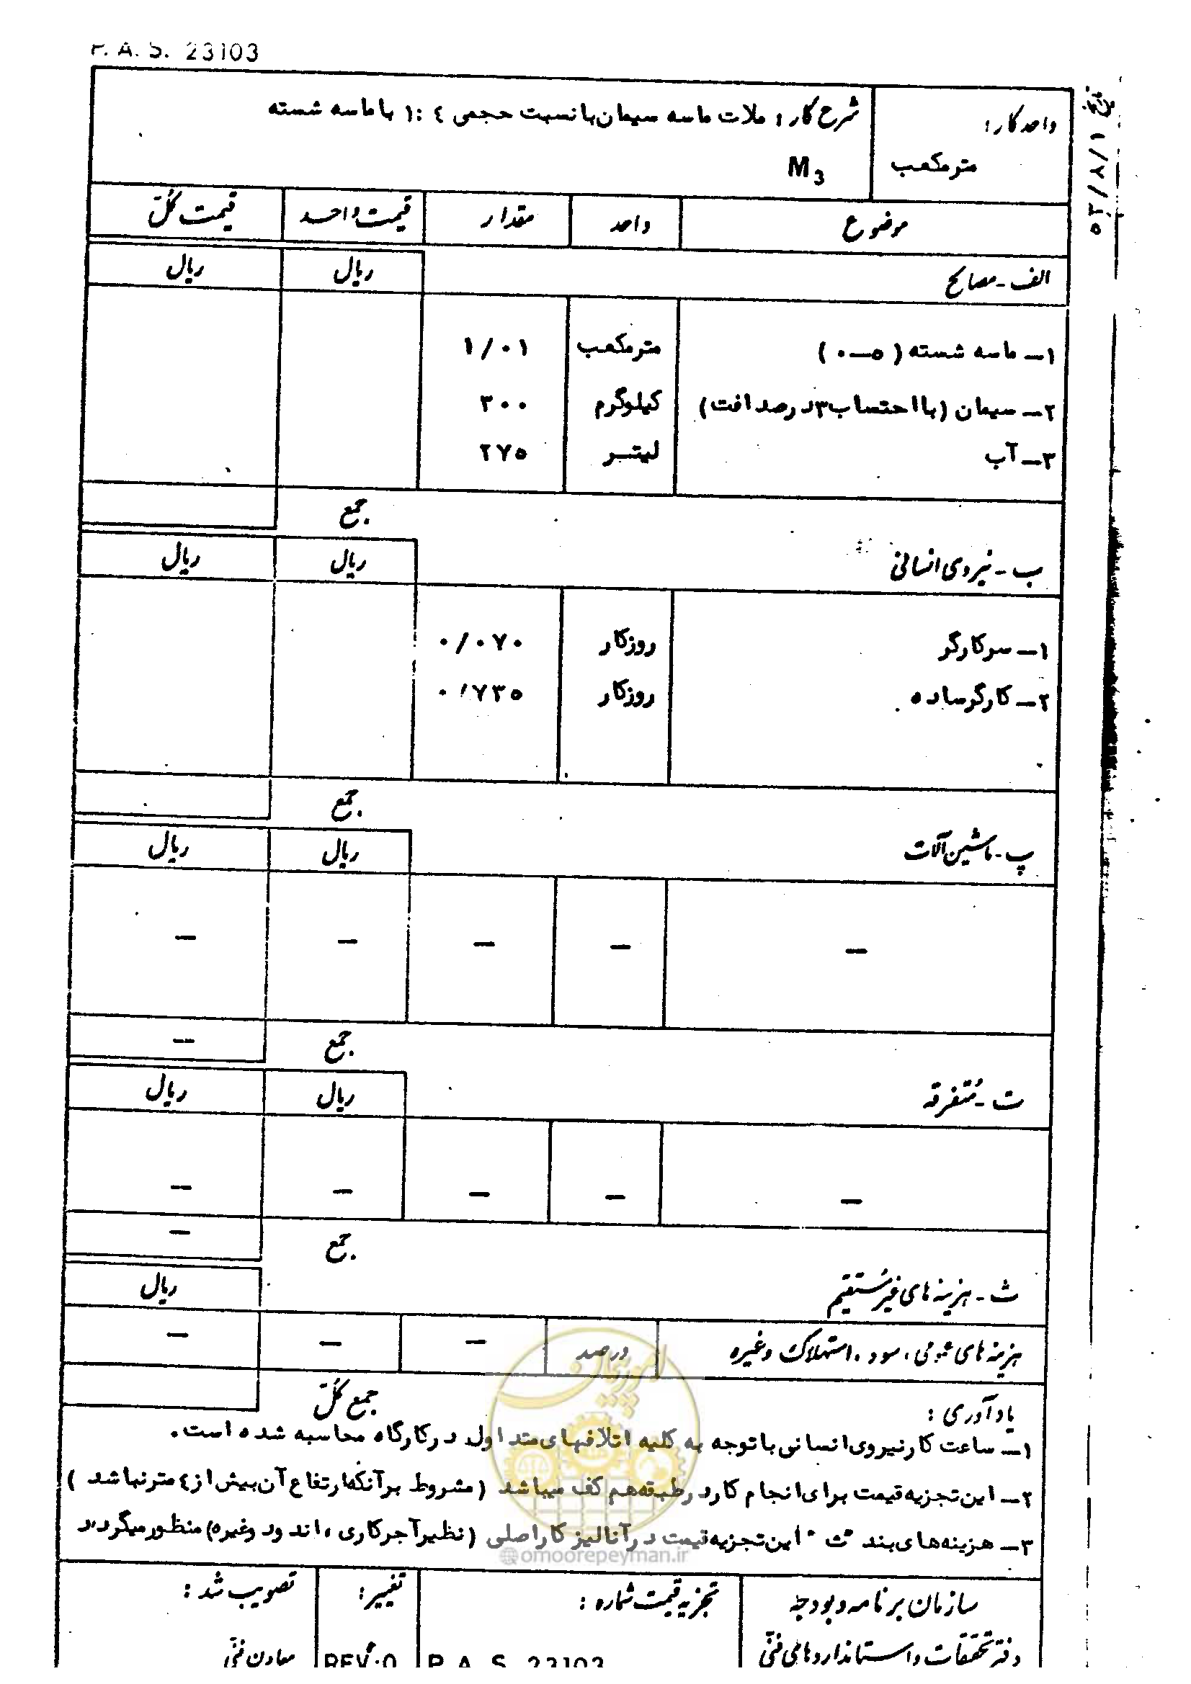 P. A. S. 23103
واحد کار :
مترمکعب
شرح کار : ملات ماسه سیمان با نسبت حجمی ٤ :١ با ماسه شسته
M3
موضوع واحد مقدار قیمت واحد قیمت کل
الف - مصالح ریال ریال
١ – ماسه شسته ( ٥ – ٠ ) مترمکعب ١/٠١
٢ – سیمان (با احتساب ٣ درصد افت) کیلوگرم ٣٠٠
٣ – آب لیتر ٢٧٥
جمع
ب - نیروی انسانی ریال ریال
١ – سرکارگر روزکار ٠/٠٧٠
٢ – کارگر ساده روزکار ٠/٧٣٥
جمع
پ - ماشین آلات ریال ریال
– – – – –
جمع –
ت - مُتفرقه ریال ریال
– – – – –
جمع –
ث - هزینه های غیرمُستقیم ریال
هزینه های عمومی ، سود ، استهلاک وغیره درصد – – –
جمع کلّ
یادآوری :
١ – ساعت کار نیروی انسانی با توجه به کلیه اتلافهای متداول در کارگاه محاسبه شده است .
٢ – این تجزیه قیمت برای انجام کار در طبقه هم کف میباشد (مشروط بر آنکه ارتفاع آن بیش از ٤ متر نباشد )
٣ – هزینه های بند "ث" این تجزیه قیمت در آنالیز کار اصلی (نظیر آجرکاری ، اندود وغیره) منظور میگردد
امور پیمان
@omoorepeyman.ir
سازمان برنامه و بودجه
دفتر تحقیقات و استانداردهای فنّی
تجزیه قیمت شماره :
P. A. S. 23103
تغییر :
REV.0
تصویب شد :
معاون فنّی